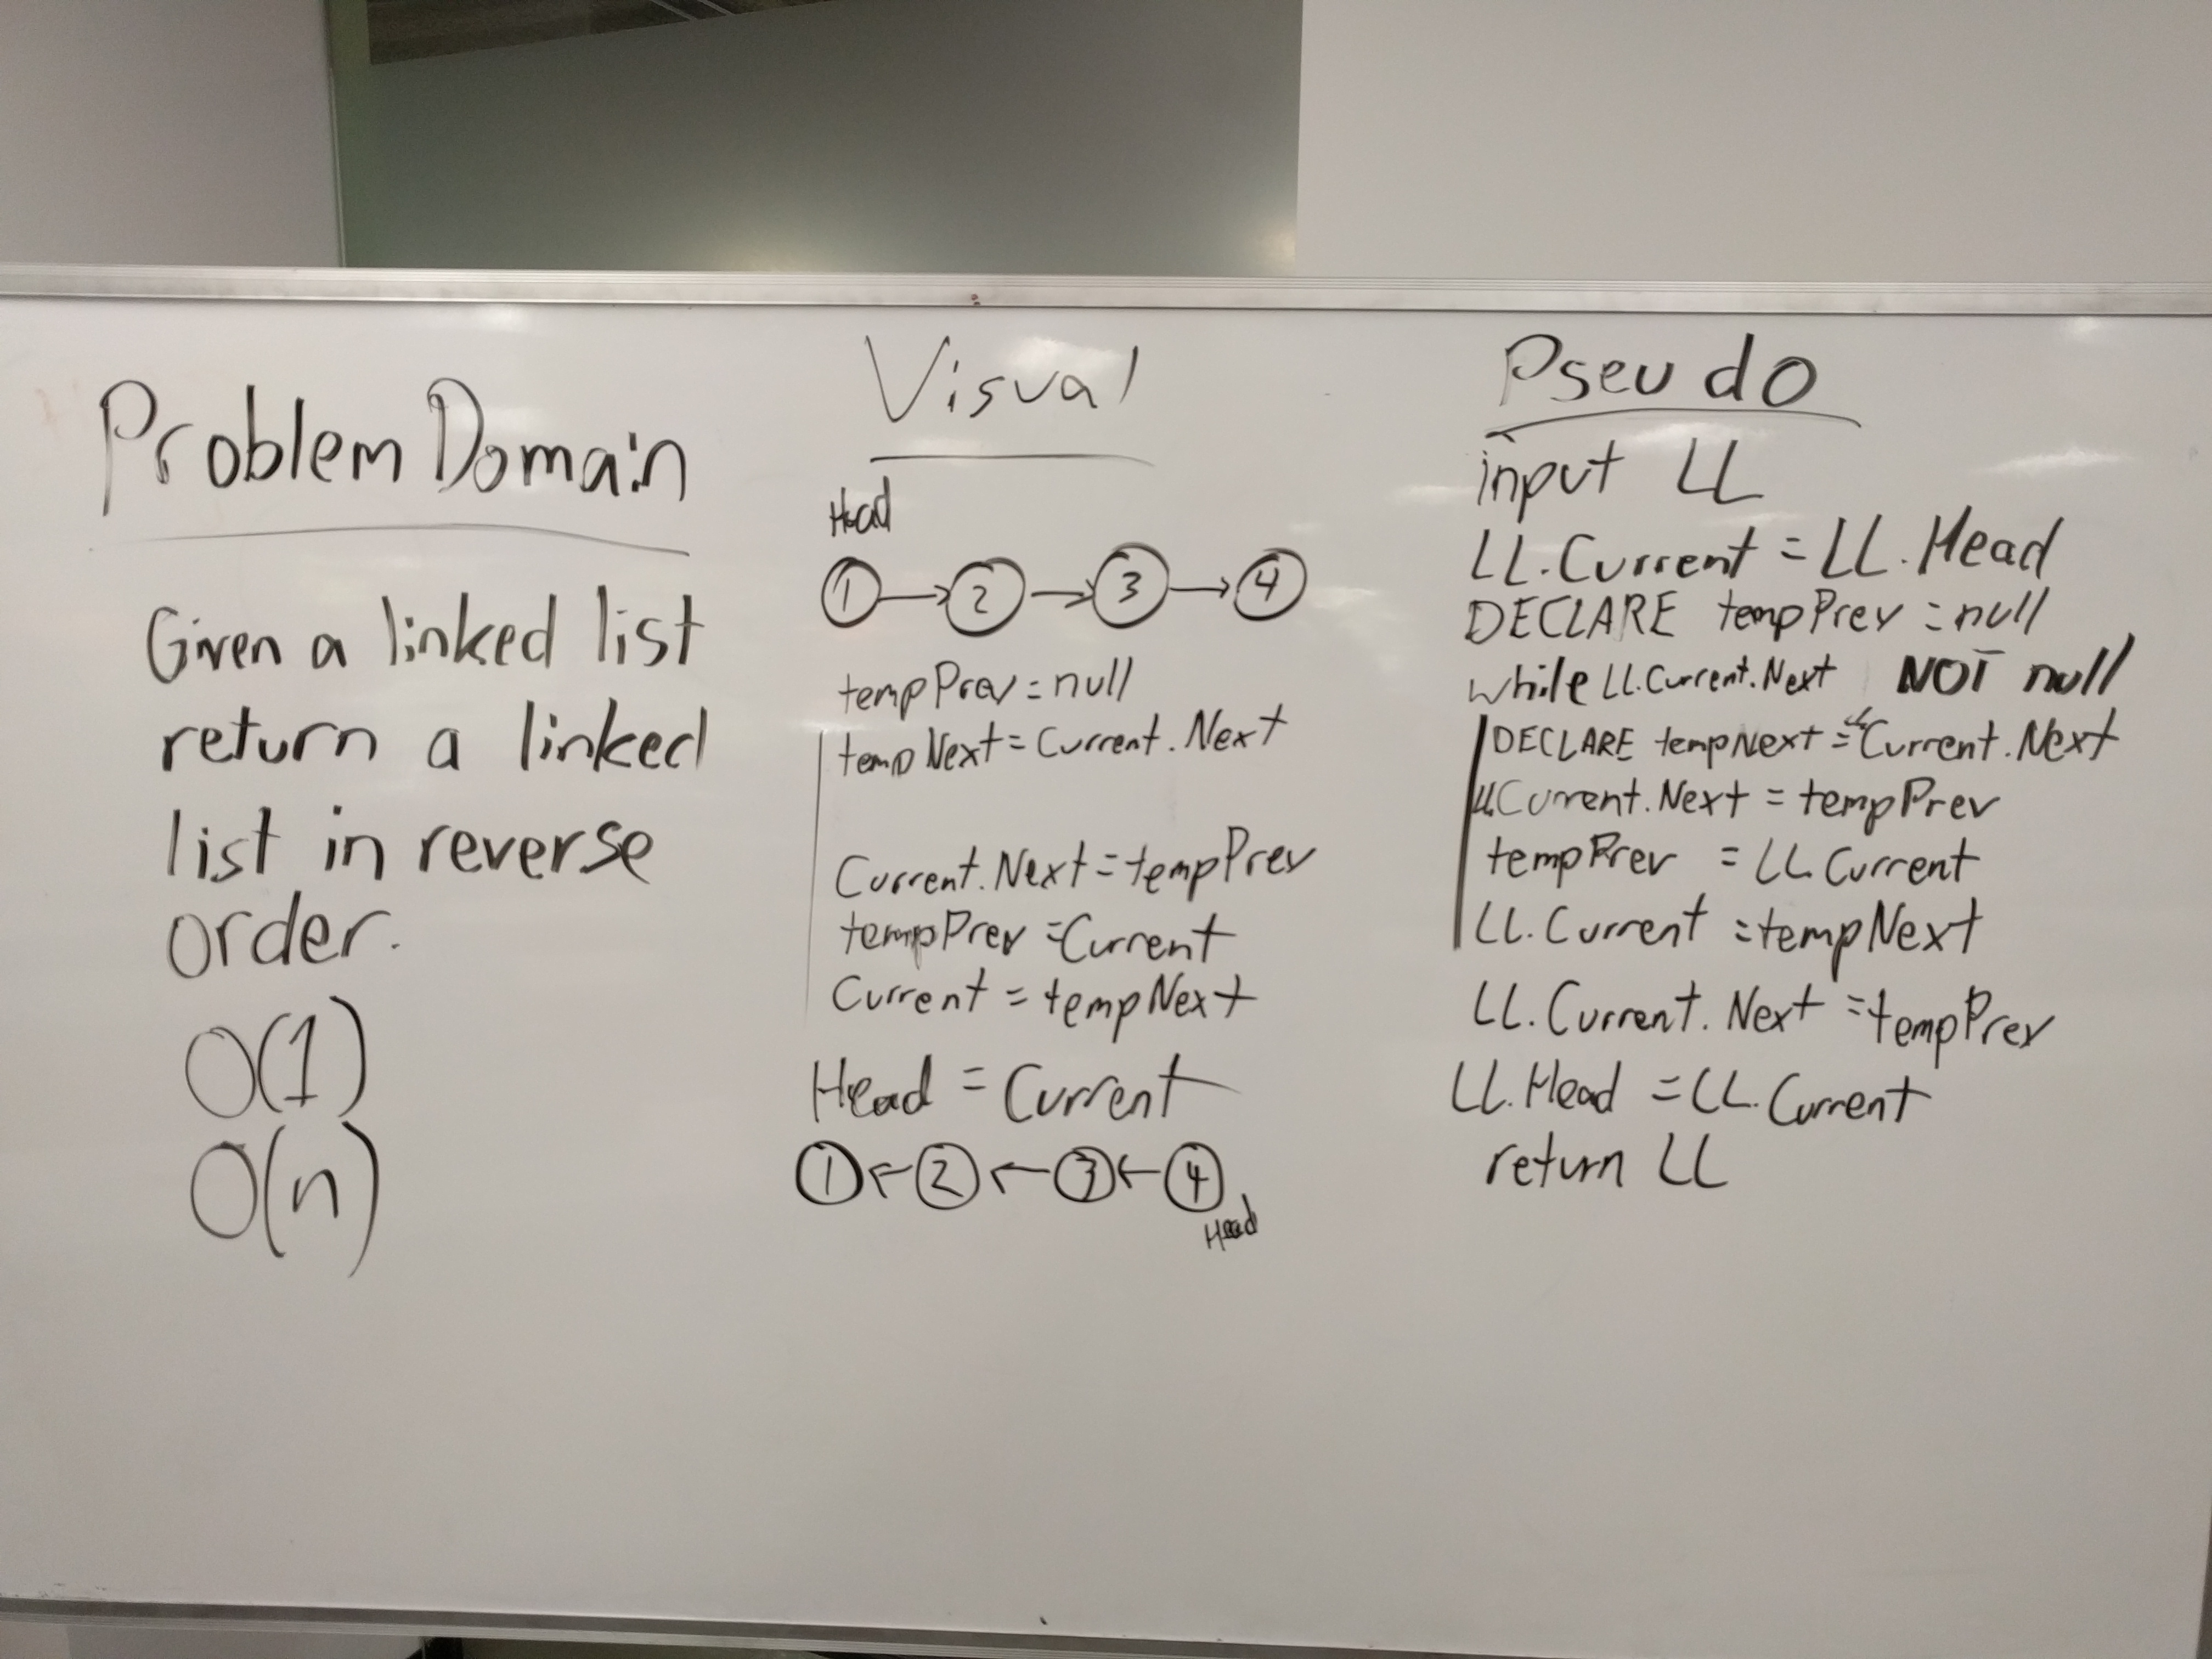 Problem Domain
Given a linked list
return a linked
list in reverse
order.
O(1)
O(n)
Visual
Head
1 → 2 → 3 → 4
tempPrev = null
tempNext = Current.Next
Current.Next = tempPrev
tempPrev = Current
Current = tempNext
Head = Current
1 ← 2 ← 3 ← 4
Head
Pseudo
input LL
LL.Current = LL.Head
DECLARE tempPrev = null
while LL.Current.Next NOT null
DECLARE tempNext = LL.Current.Next
LL.Current.Next = tempPrev
tempPrev = LL.Current
LL.Current = tempNext
LL.Current.Next = tempPrev
LL.Head = LL.Current
return LL